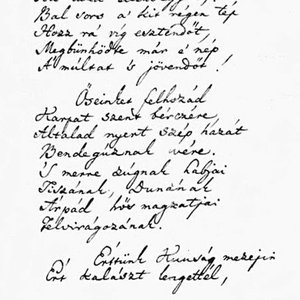 Bal sors a' kit régen tép
Hozz rá víg esztendőt,
Megbünhödte már e' nép
A' múltat 's jövendőt!
Őseinket felhozád
Karpat szent bérczére,
Általad nyert szép hazát
Bendegúznak vére.
'S merre zúgnak habjai
Tiszának, Dunának
Árpád, hős magzatjai
Felvirágozának.
Értünk Kunság mezein
Ért kalászt lengettél,